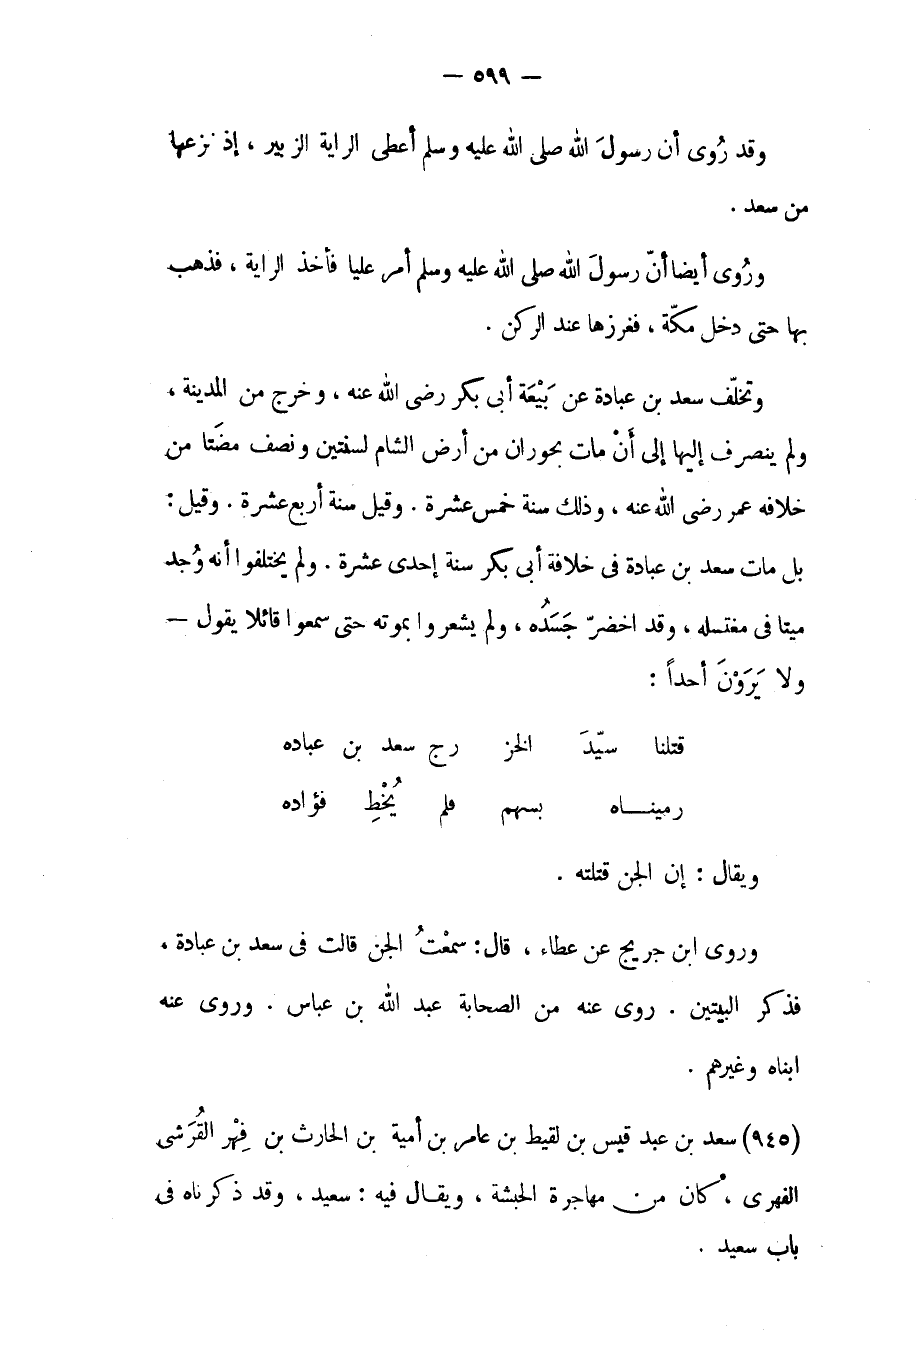 — ٥٩٩ —
وقد رُوى أن رسولَ الله صلى الله عليه وسلم أعطى الراية الزبير ، إذ نزعها
من سعد .
ورُوى أيضا أنّ رسولَ الله صلى الله عليه وسلم أمر عليا فأخذ الراية ، فذهب
بها حتى دخل مكّة ، فغرزها عند الركن .
وتخلّف سعد بن عبادة عن بَيْعَة أبى بكر رضى الله عنه ، وخرج من المدينة ،
ولم ينصرف إليها إلى أَنْ مات بحوران من أرض الشام لسنتين ونصف مضَتا من
خلافه عمر رضى الله عنه ، وذلك سنة خمس عشرة . وقيل سنة أربع عشرة . وقيل :
بل مات سعد بن عبادة فى خلافة أبى بكر سنة إحدى عشرة . ولم يختلفوا أنه وُجد
ميتا فى مغتسله ، وقد اخضرّ جَسَدُه ، ولم يشعروا بموته حتى سمعوا قائلا يقول —
ولا يَرَوْنَ أحداً :
قتلنا سيّدَ الخز رج سعد بن عباده
رمينــاه بسهم فلم يُخْطِ فؤاده
ويقال : إن الجن قتلته .
وروى ابن جريج عن عطاء ، قال : سمعْتُ الجن قالت فى سعد بن عبادة ،
فذكر البيتين . روى عنه من الصحابة عبد الله بن عباس . وروى عنه
ابناه وغيرهم .
(٩٤٥) سعد بن عبد قيس بن لقيط بن عامر بن أمية بن الحارث بن فِهْر القُرَشى
الفهرى ، كان من مهاجرة الحبشة ، ويقال فيه : سعيد ، وقد ذكرناه فى
باب سعيد .